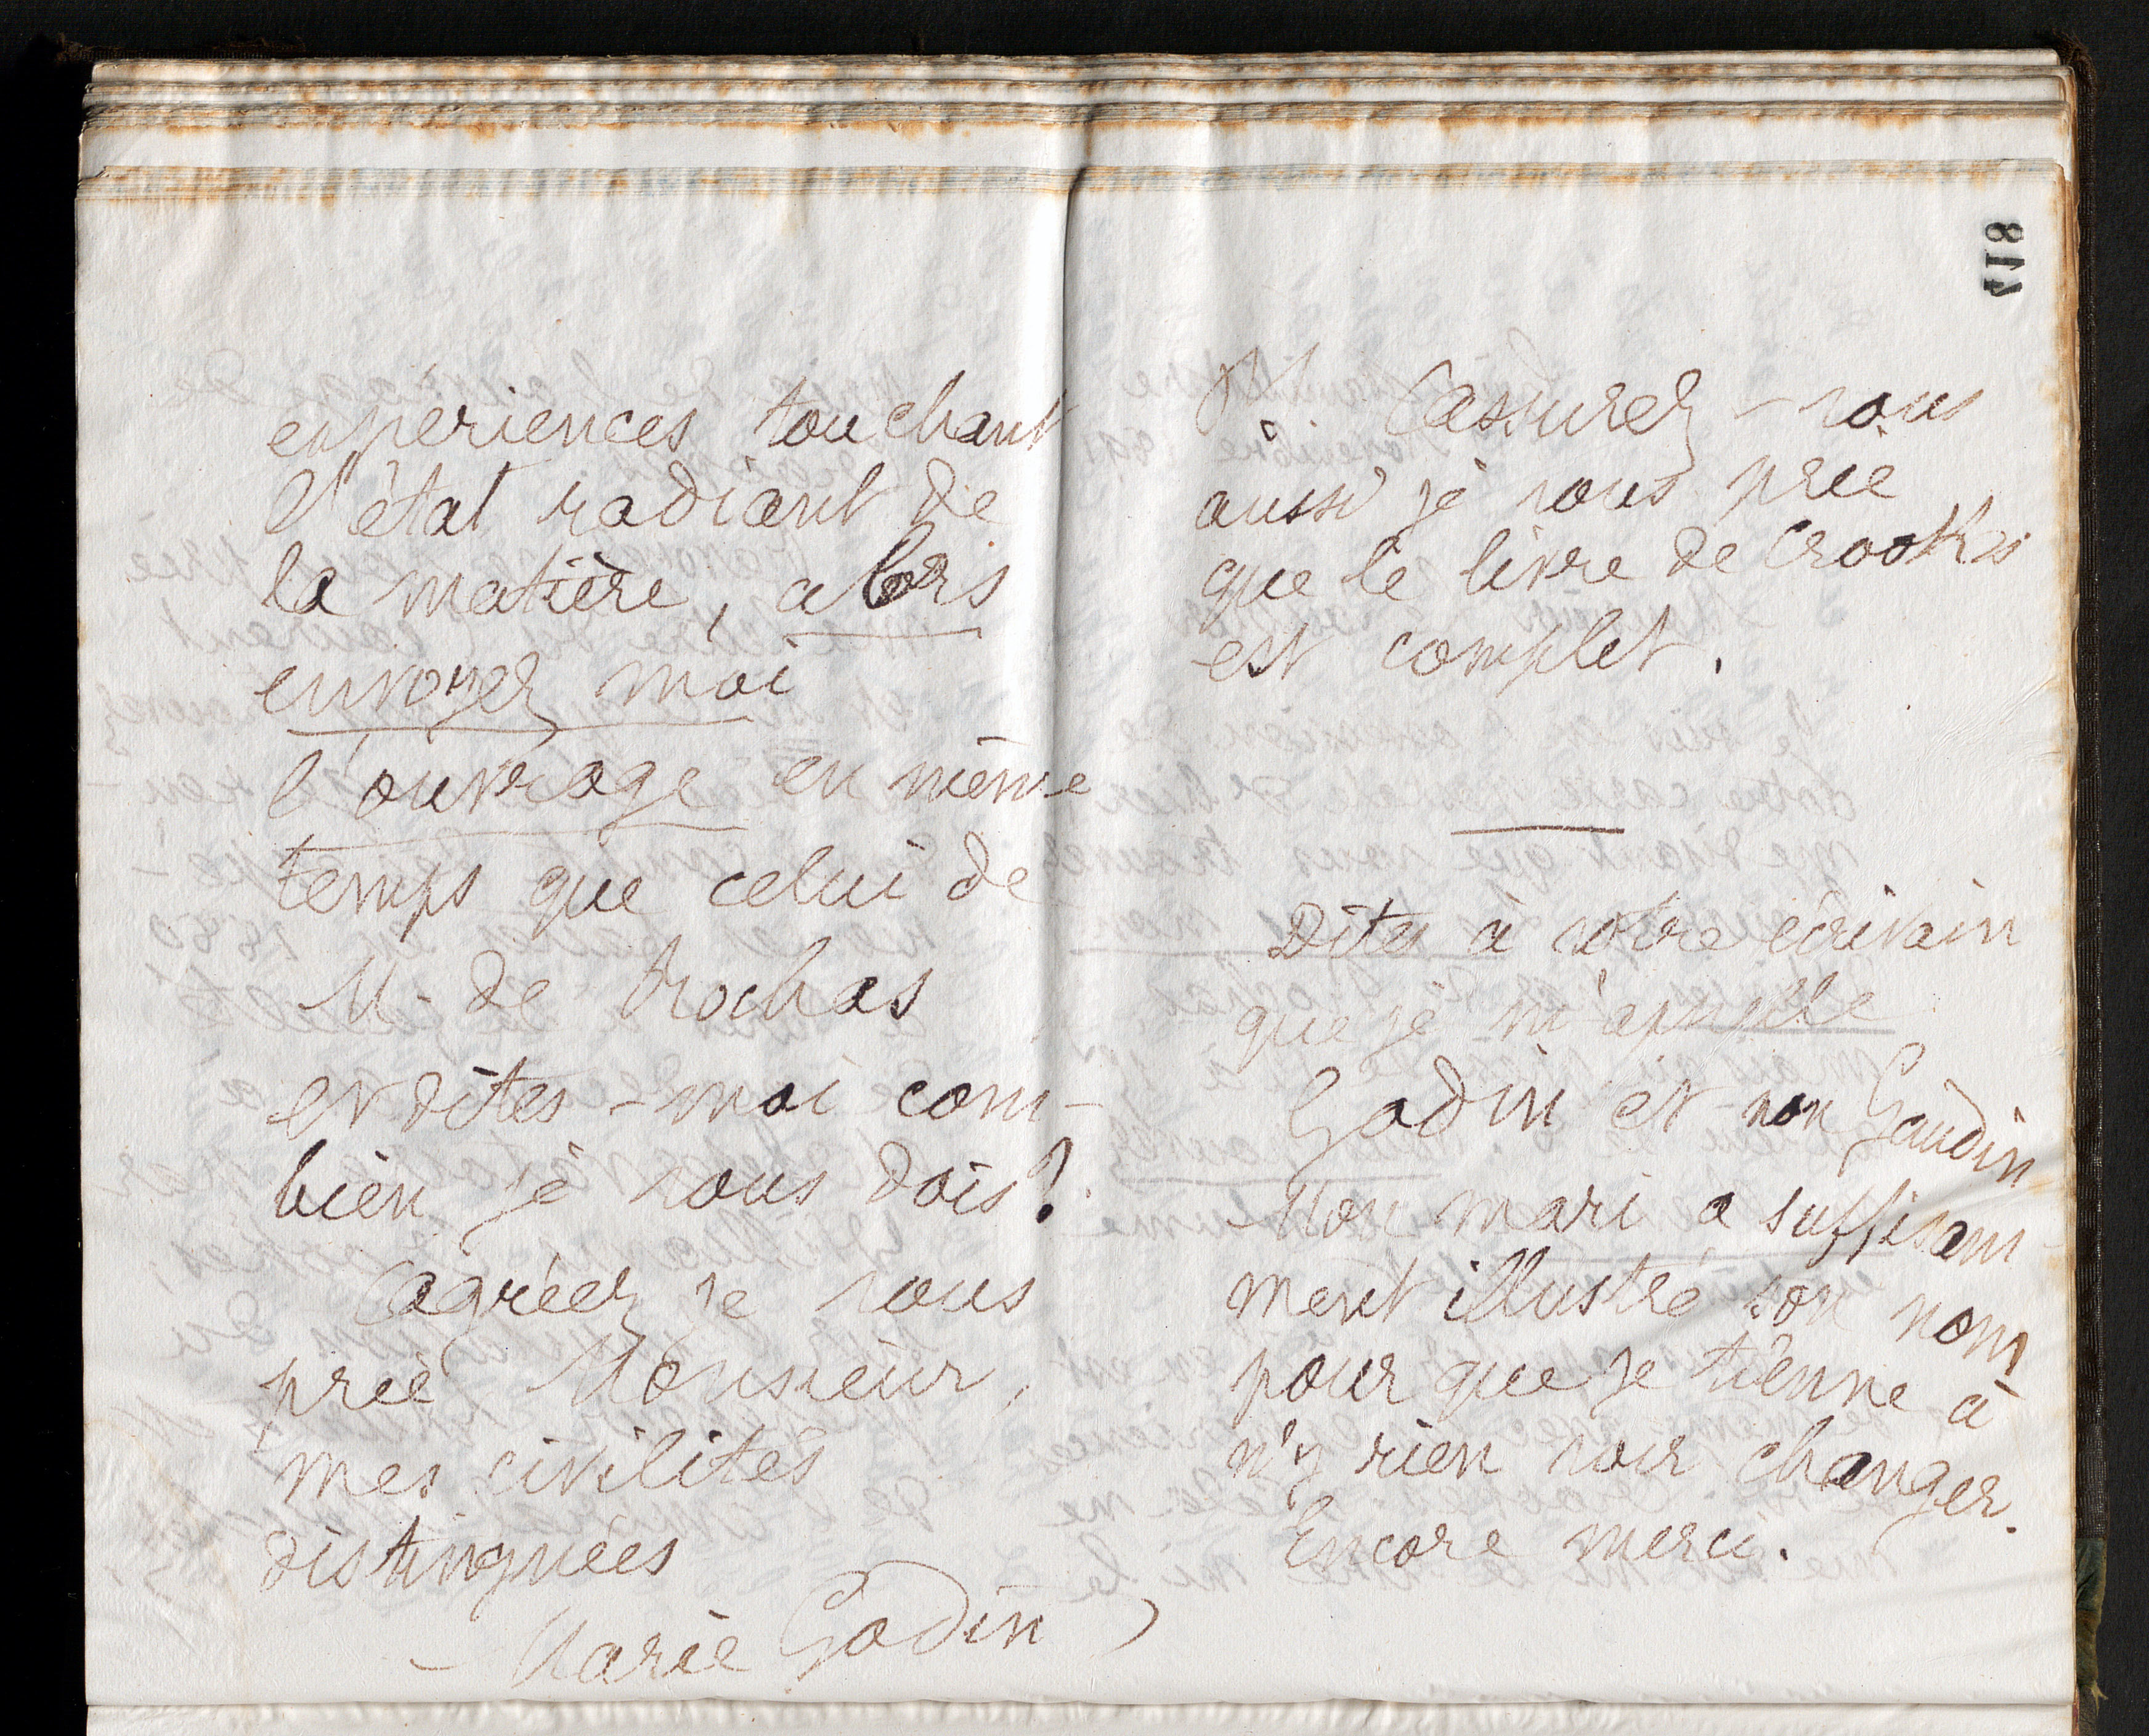 expériences touchant
l'état radiant de
la matière, alors
envoyez moi
l'ouvrage en même
temps que celui de
M. de Rochas
et dites-moi com-
bien je vous dois?
Agréez je vous
prie Monsieur,
mes civilités
distinguées
Marie Godin
Assurez-vous
aussi je vous prie
que le livre de Crookes
est complet.
Dites à votre écrivain
que je m'appelle
Godin et non Gaudin
Mon mari a suffisam-
ment illustré son nom
pour que je tienne à
n'y rien voir changer.
Encore merci.